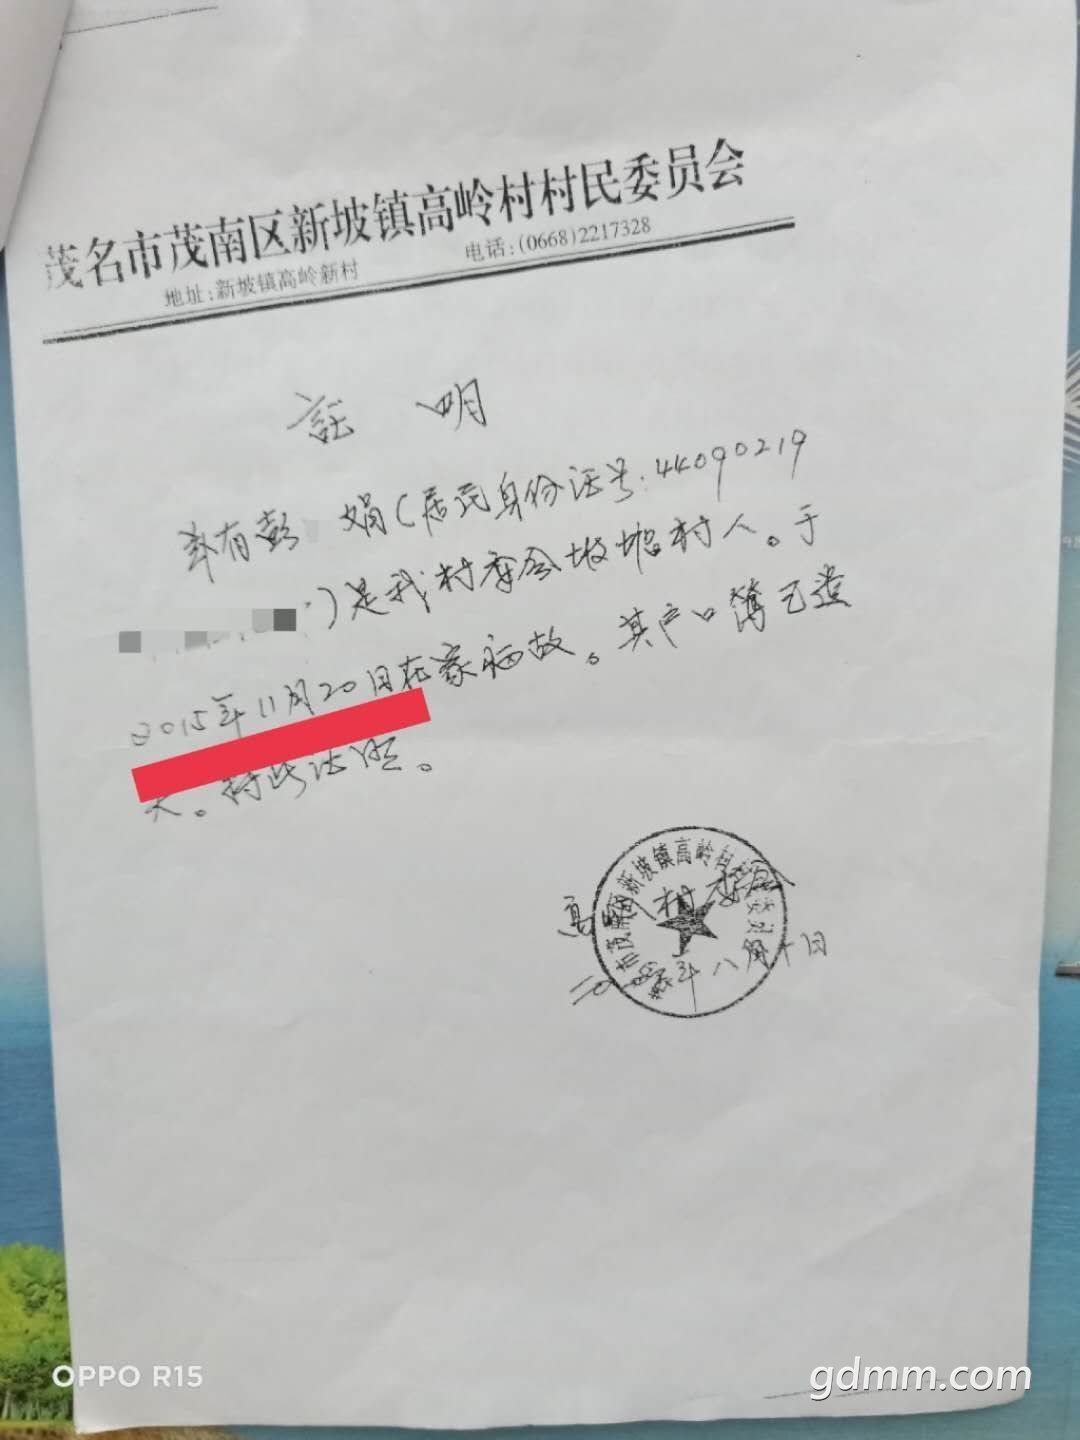 茂名市茂南区新坡镇高岭村村民委员会
地址:新坡镇高岭新村 电话:(0668)2217328
証 明
兹有彭 娟(居民身份证号:44090219
)是我村委会坡塘村人。于
2015年11月20日在家病故。其户口簿已遗
失。特此证明。
高岭村委会
年八月十日
新坡镇高岭村
OPPO R15
gdmm.com